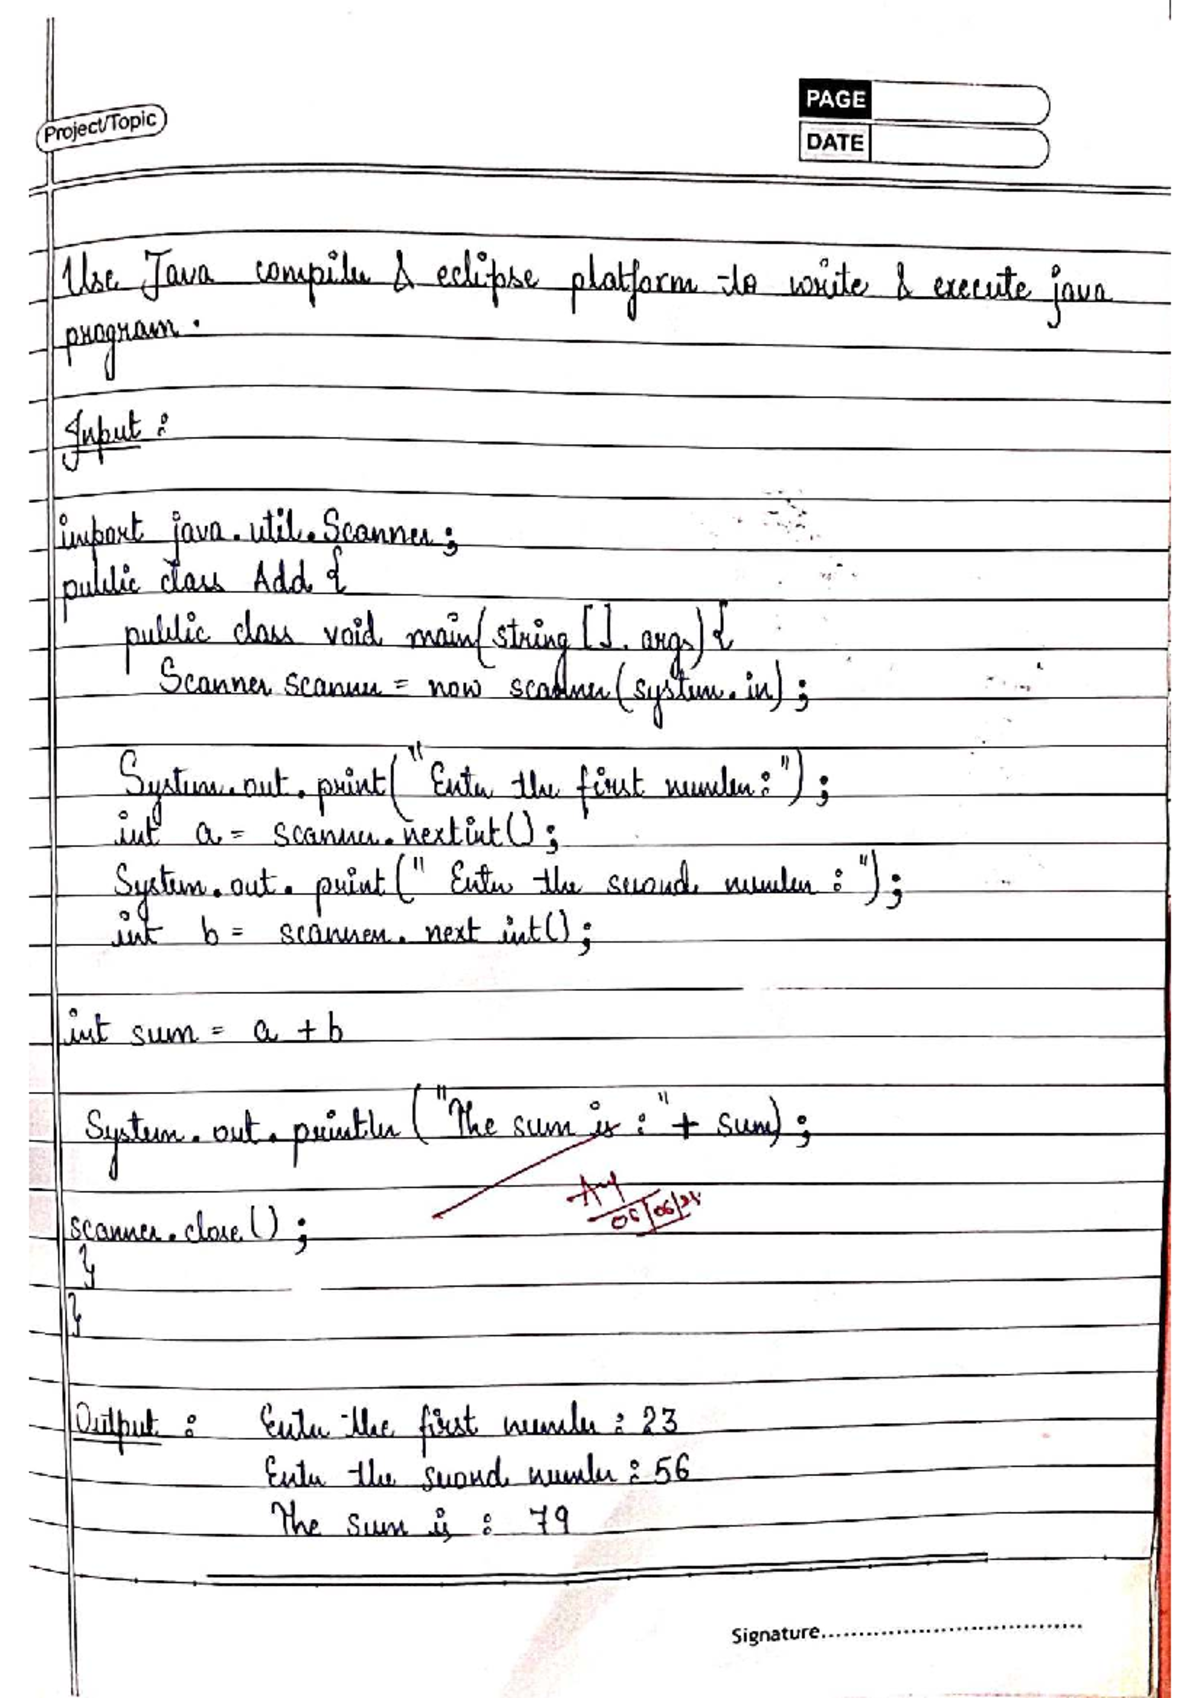 Project/Topic
PAGE
DATE
Use Java compiler & eclipse platform to write & execute java
program.
Input :
import java.util.Scanner;
public class Add {
public class void main(string [ ]. args) {
Scanner scanner = now scanner(system.in);
System.out.print("Enter the first number:");
int a = scanner.nextint();
System.out.print(" Enter the second number : ");
int b = scanner. next int();
int sum = a + b
System.out.println ("The sum is :" + sum);
scanner.close();
}
}
Output : Enter the first number : 23
Enter the second number : 56
The sum is : 79
Signature